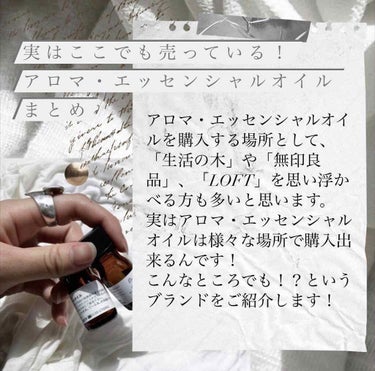 実はここでも売っている！
アロマ・エッセンシャルオイル
まとめ
アロマ・エッセンシャルオイ
ルを購入する場所として、
「生活の木」や「無印良
品」、「LOFT」を思い浮か
べる方も多いと思います。
実はアロマ・エッセンシャル
オイルは様々な場所で購入出
来るんです！
こんなところでも！？という
ブランドをご紹介します！